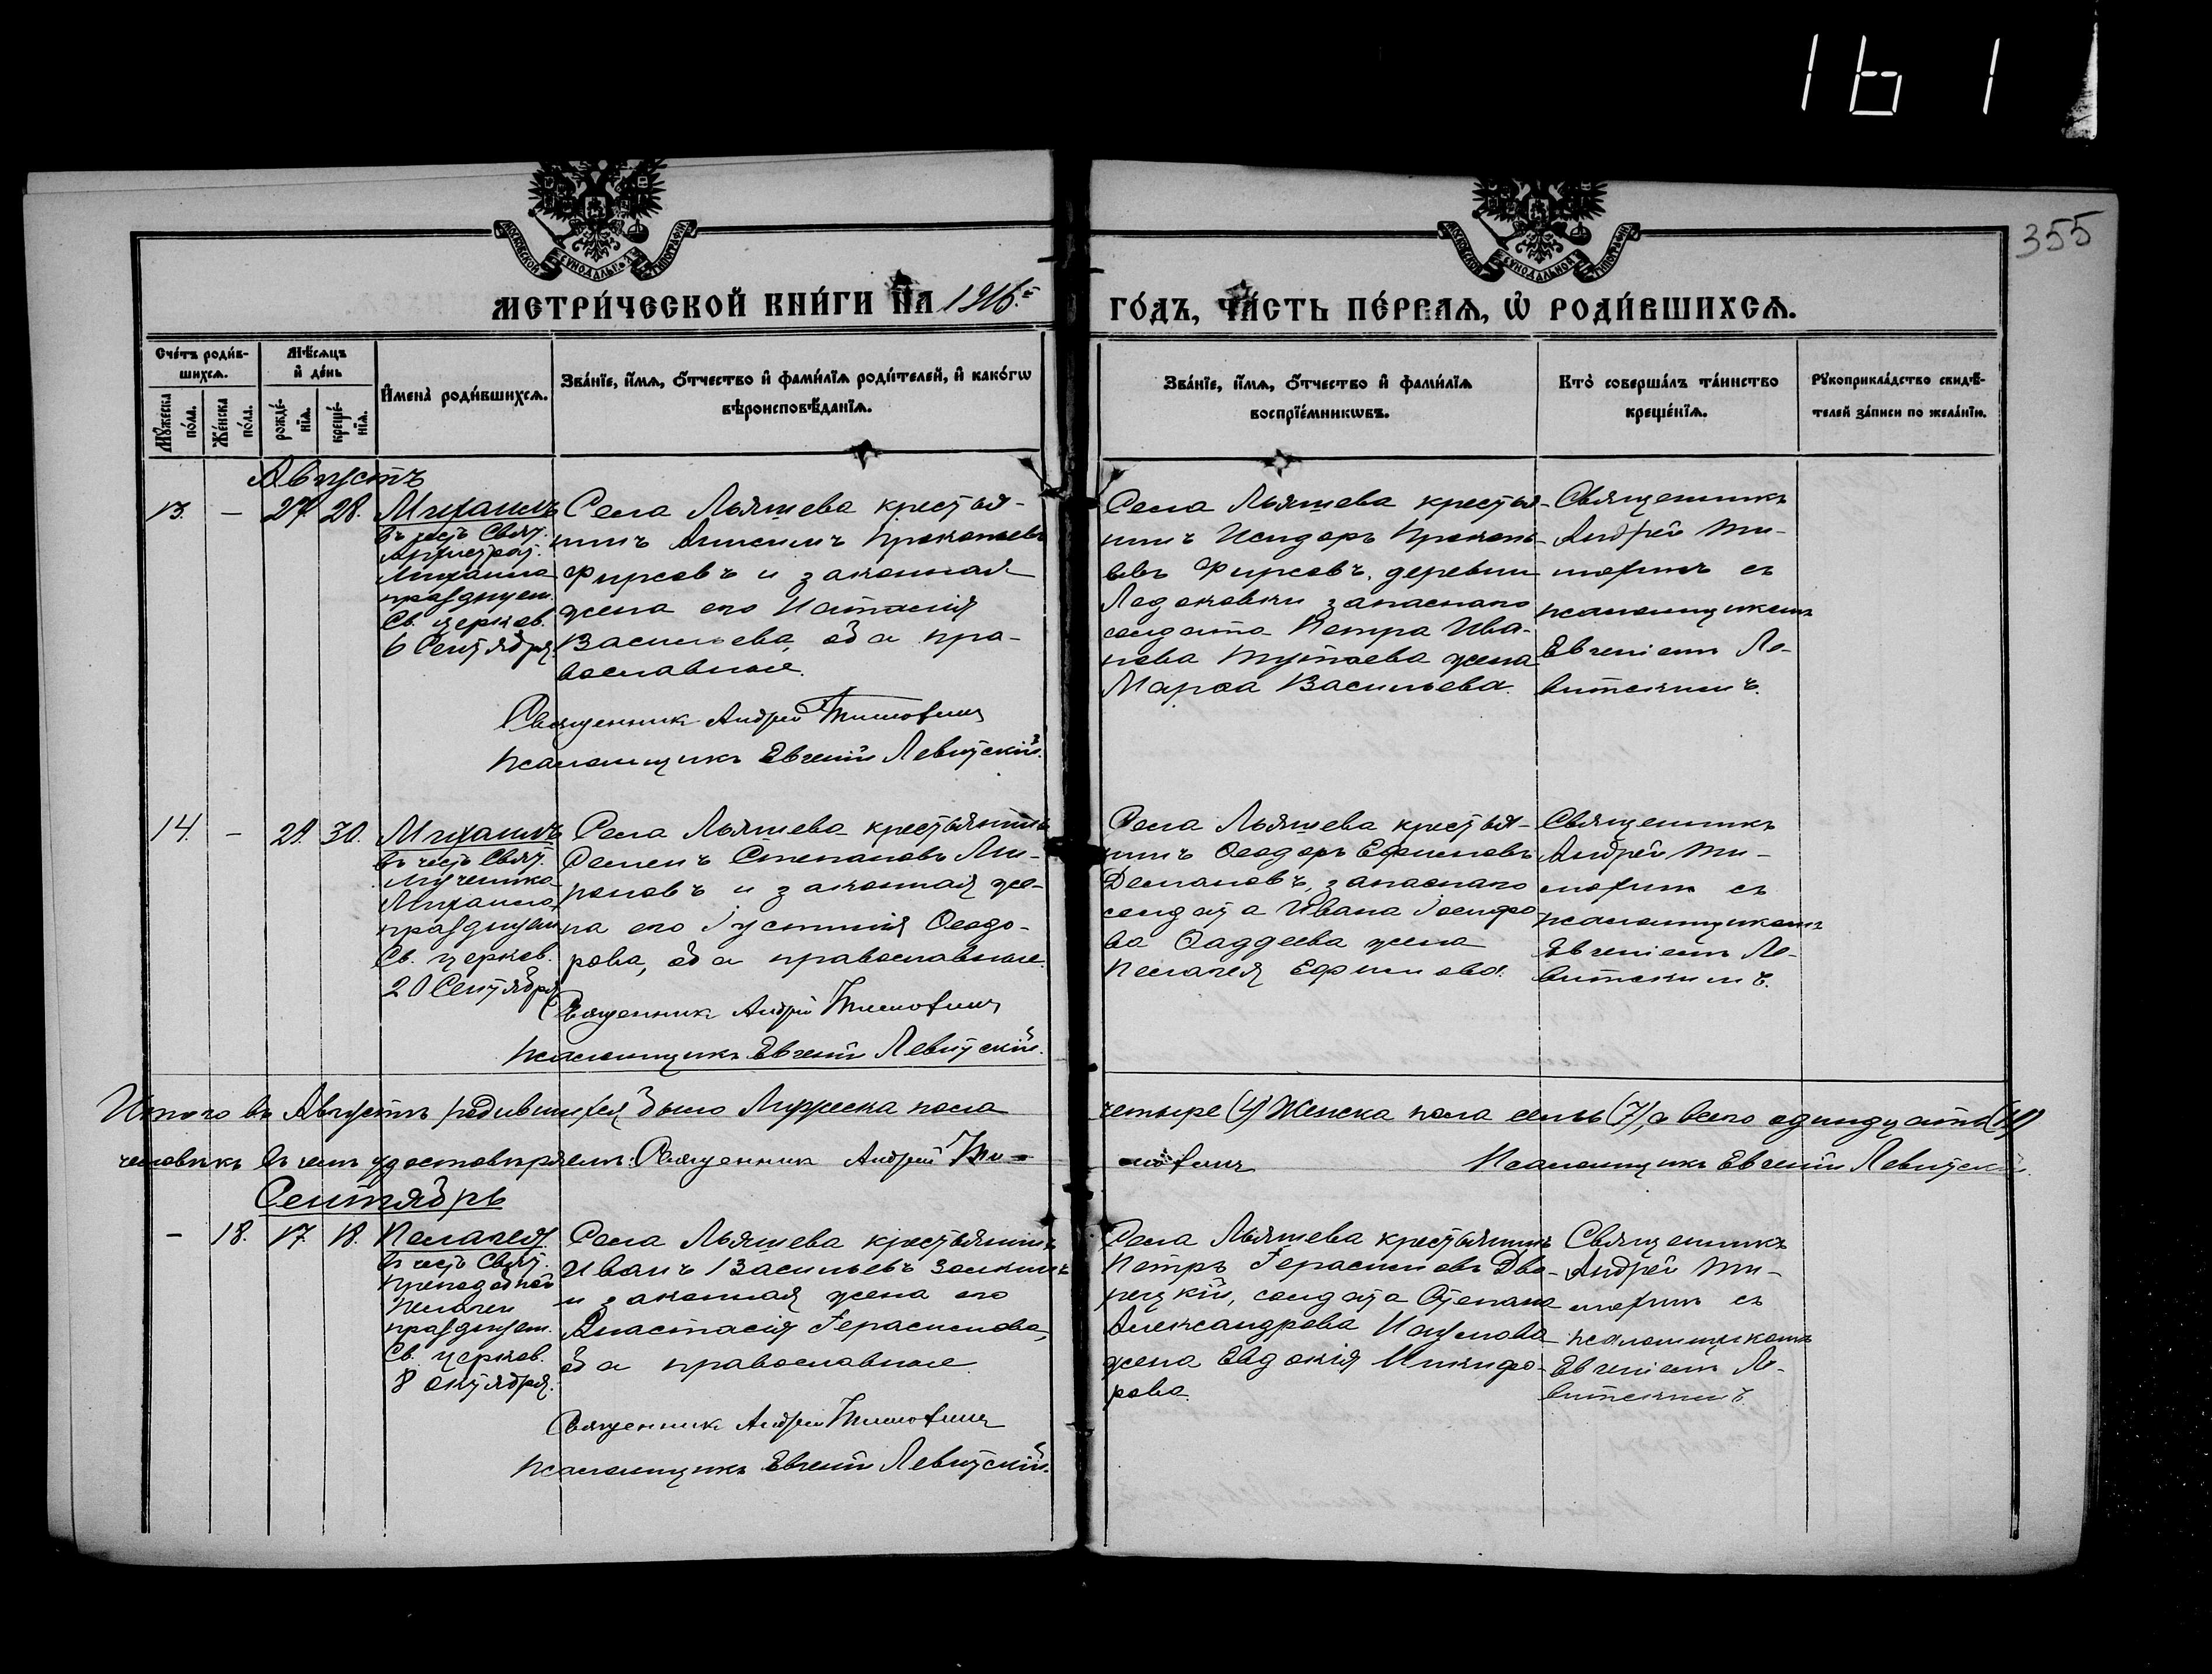 161
355
МОСКОВСКОЙ СѴНОДАЛЬНОЙ ТИПОГРАФІИ
МОСКОВСКОЙ СѴНОДАЛЬНОЙ ТИПОГРАФІИ
МЕТРИ́ЧЕСКОЙ КНИ́ГИ НА 1916.й
ГО́ДЪ, ЧА́СТЬ ПЕ́РВАѦ, Ѡ҆ РОДИ́ВШИХСѦ.
Сче́тъ роди́в-
шихсѧ.
Мꙋ́жеска
по́ла.
Же́нска
по́ла.
Мѣ́сѧцъ
и҆ де́нь
рожде́-
нїѧ.
креще́-
нїѧ.
И҆мена̀ роди́вшихсѧ.
Зва́нїе, и҆́мѧ, ѻ҆́тчество и҆ фами́лїѧ роди́телей, и҆ како́гѡ
вѣроисповѣ́данїѧ.
Зва́нїе, и҆́мѧ, ѻ҆́тчество и҆ фами́лїѧ
воспрїе́мникѡвъ.
Кто̀ соверша́лъ та́инство
креще́нїѧ.
Рꙋкоприкла́дство свидѣ́-
телей за́писи по жела́нїю.
Августъ
13. – 27. 28.
Михаилъ
въ честь Свят.
Архистрат.
Михаила
празднуем.
Св. церков.
6 Сентября.
Села Льяшева крестья-
нинъ Анисимъ Прокопьевъ
Фирсовъ и законная
жена его Наталія
Васильева, оба пра-
вославные.
Священникъ Андрей Тимоѳинъ
Псаломщикъ Евгеній Левитскій.
Села Льяшева крестья-
нинъ Исидоръ Прокопь-
евъ Фирсовъ, деревни
запаснаго
солдата Петра Ива-
нова жена
Марѳа Васильева.
Священникъ
Андрей Ти-
моѳинъ съ
псаломщикомъ
Евгеніемъ Ле-
витскимъ.
14. – 29. 30.
Михаилъ
въ честь Свят.
Мученика
Михаила
празднуем
Св. церков.
20 Сентября
Села Льяшева крестьянинъ
Семенъ Степановъ Ми-
роновъ и законная же-
на его Іустинія Ѳеодо-
рова, оба православные.
Священникъ Андрей Тимоѳинъ
Псаломщикъ Евгеній Левитскій.
Села Льяшева крестья-
нинъ Ѳеодоръ Ефимовъ
Демановъ, запаснаго
солдата Ивана Іосифо
ва Ѳаддеева жена
Пелагея Ефимова.
Священникъ
Андрей Ти-
моѳинъ съ
псаломщикомъ
Евгеніемъ Ле-
витскимъ.
Итого въ Августѣ родившихся было Мужеска пола четыре (4) Женска пола семь (7), а всего одинадцать (11)
человѣкъ въ чемъ удостовѣряемъ: Священникъ Андрей Ти-моѳинъ Псаломщикъ Евгеній Левитскій.
Сентябрь
– 18. 17. 18.
Пелагея
въ честь Свят.
Преподобной
Пелагеи
празднуем.
Св. церков.
8 октября.
Села Льяшева крестьянинъ
Иванъ Васильевъ
и законная жена его
Анастасія Герасимова,
оба православные
Священникъ Андрей Тимоѳинъ
Псаломщикъ Евгеній Левитскій.
Села Льяшева крестьянинъ
Петръ Герасимовъ Дво-
рецкій, солдата Степана
Александрова Наумова
жена Евдокія Никифо-
рова.
Священникъ
Андрей Ти-
моѳинъ съ
псаломщикомъ
Евгеніемъ Ле-
витскимъ.